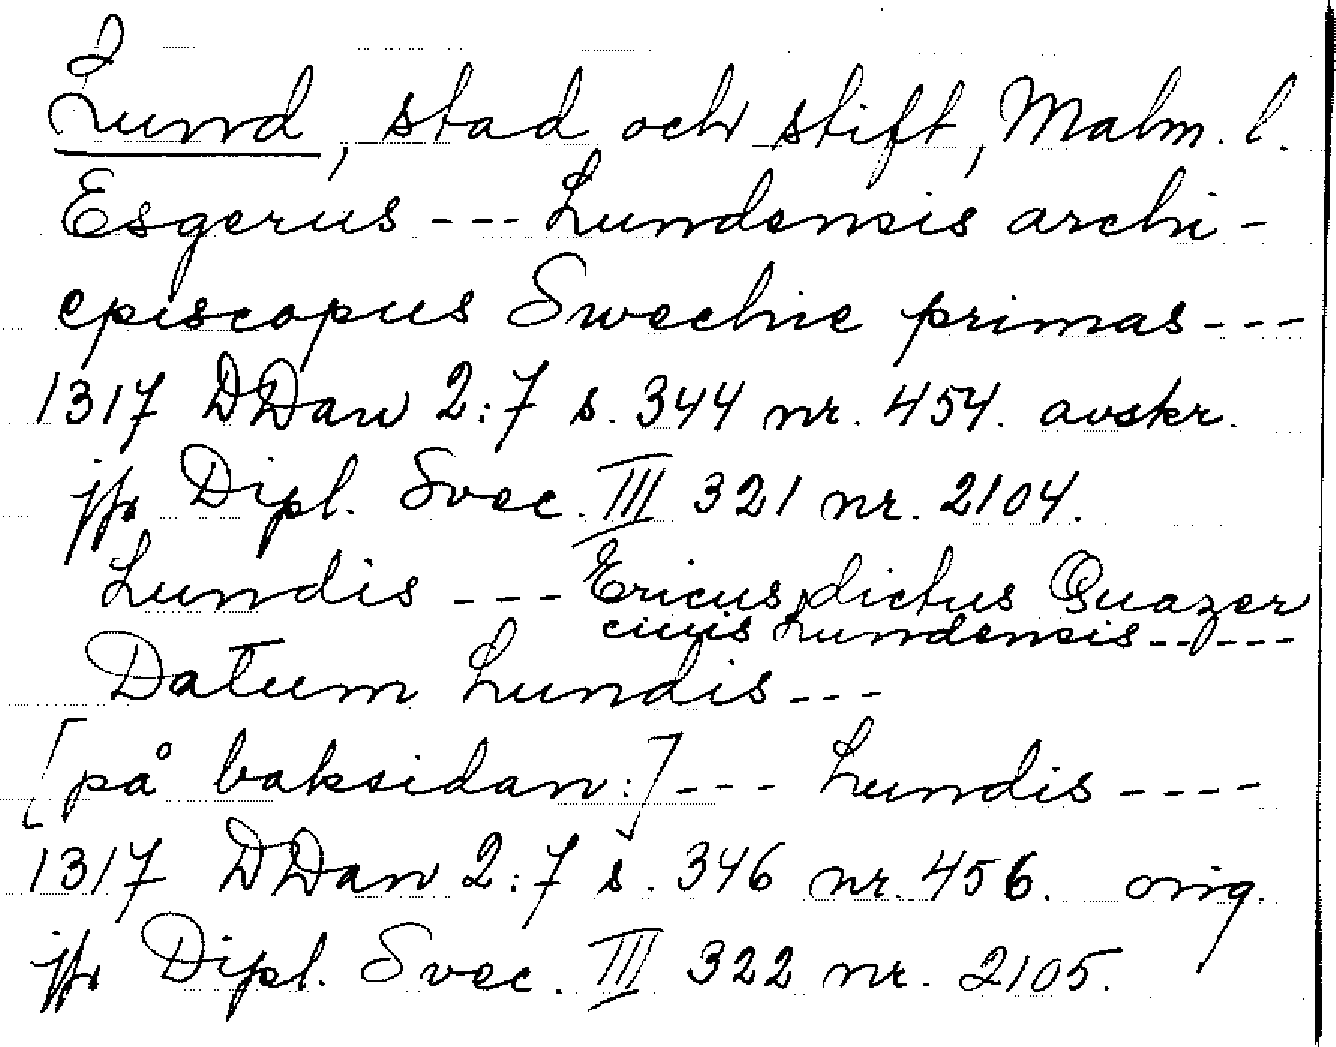 Lund, stad och stift, Malm. l.
Esgerus --- Lundensis archi-
episcopus Swechie primas ---
1317 DDan 2:7 s. 344 nr. 454. avskr.
jfr Dipl. Svec. III 321 nr. 2104.
Lundis --- Ericus dictus Quazer
ciuis Lundensis -----
Datum Lundis ---
[på baksidan:] --- Lundis ----
1317 DDan 2:7 s. 346 nr. 456. orig.
jfr Dipl. Svec. III 322 nr. 2105.